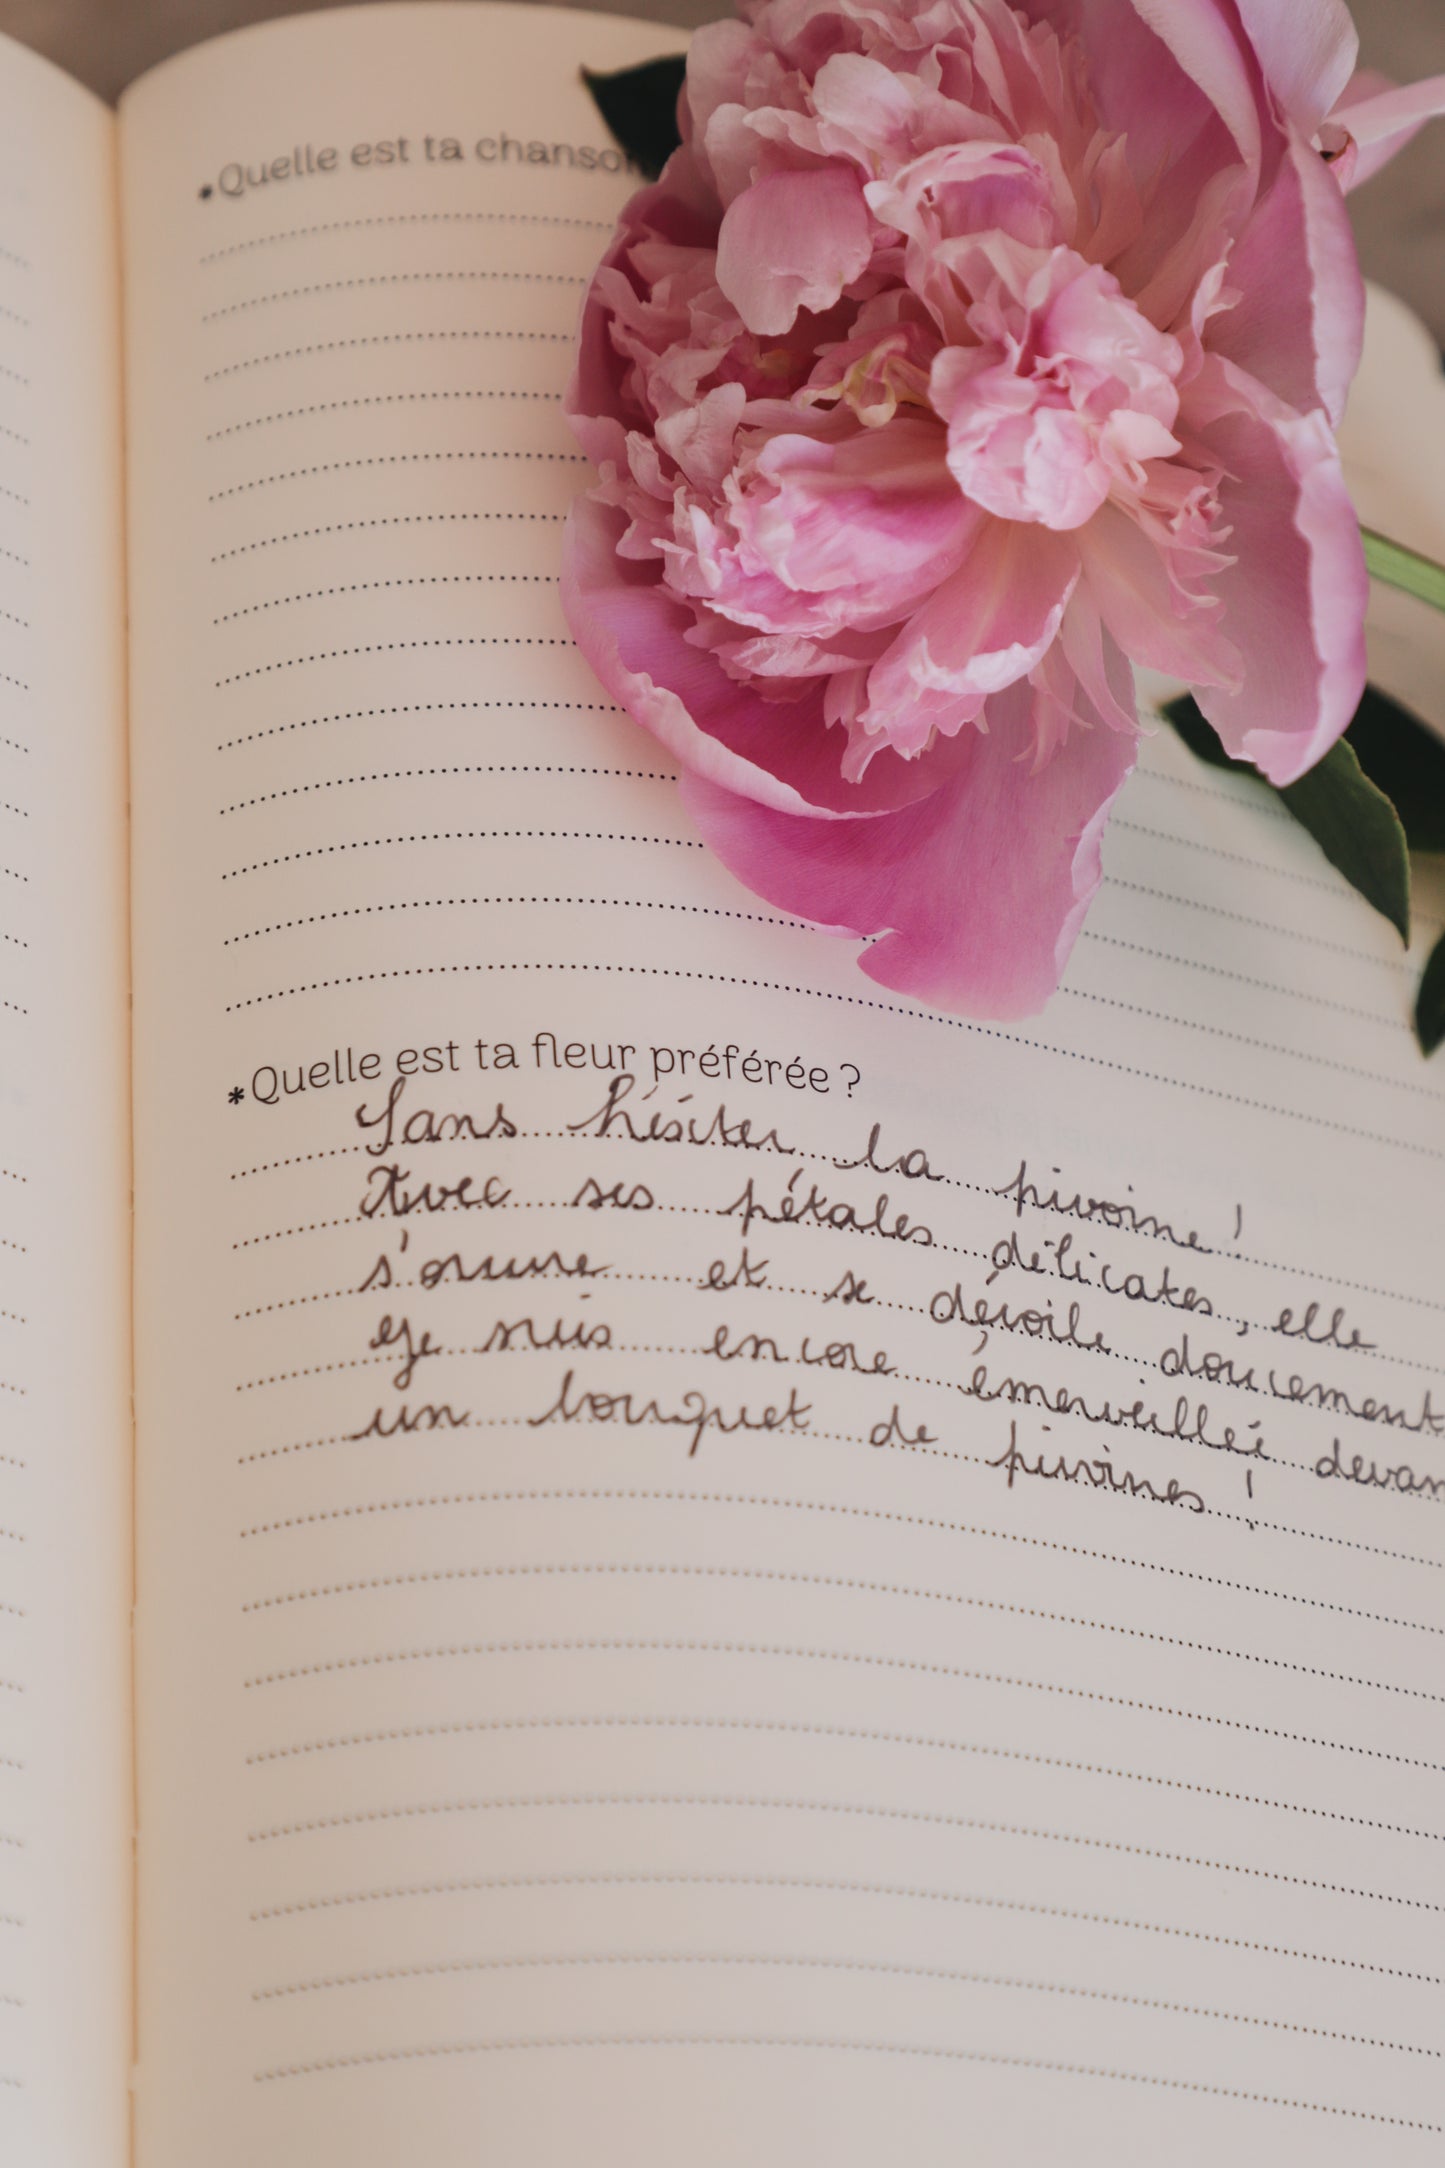 *Quelle est ta chanson
*Quelle est ta fleur préférée ?
Sans hésiter la pivoine !
Avec ses pétales délicates, elle
s'ouvre et se dévoile doucement
Je suis encore émerveillée devan
un bouquet de pivoines !